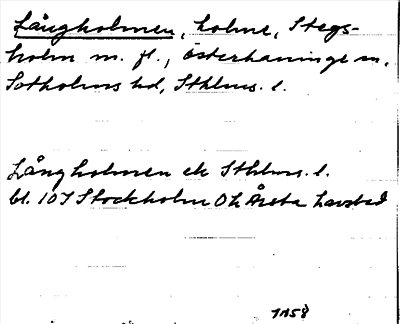 Långholmen, holme, Stegs-
holm m. fl., Österhaninge sn,
Sotholms hd, Sthlms. l.
Långholmen ek Sthlms. l.
bl. 107 Stockholm Ok Årsta havsbad
1958